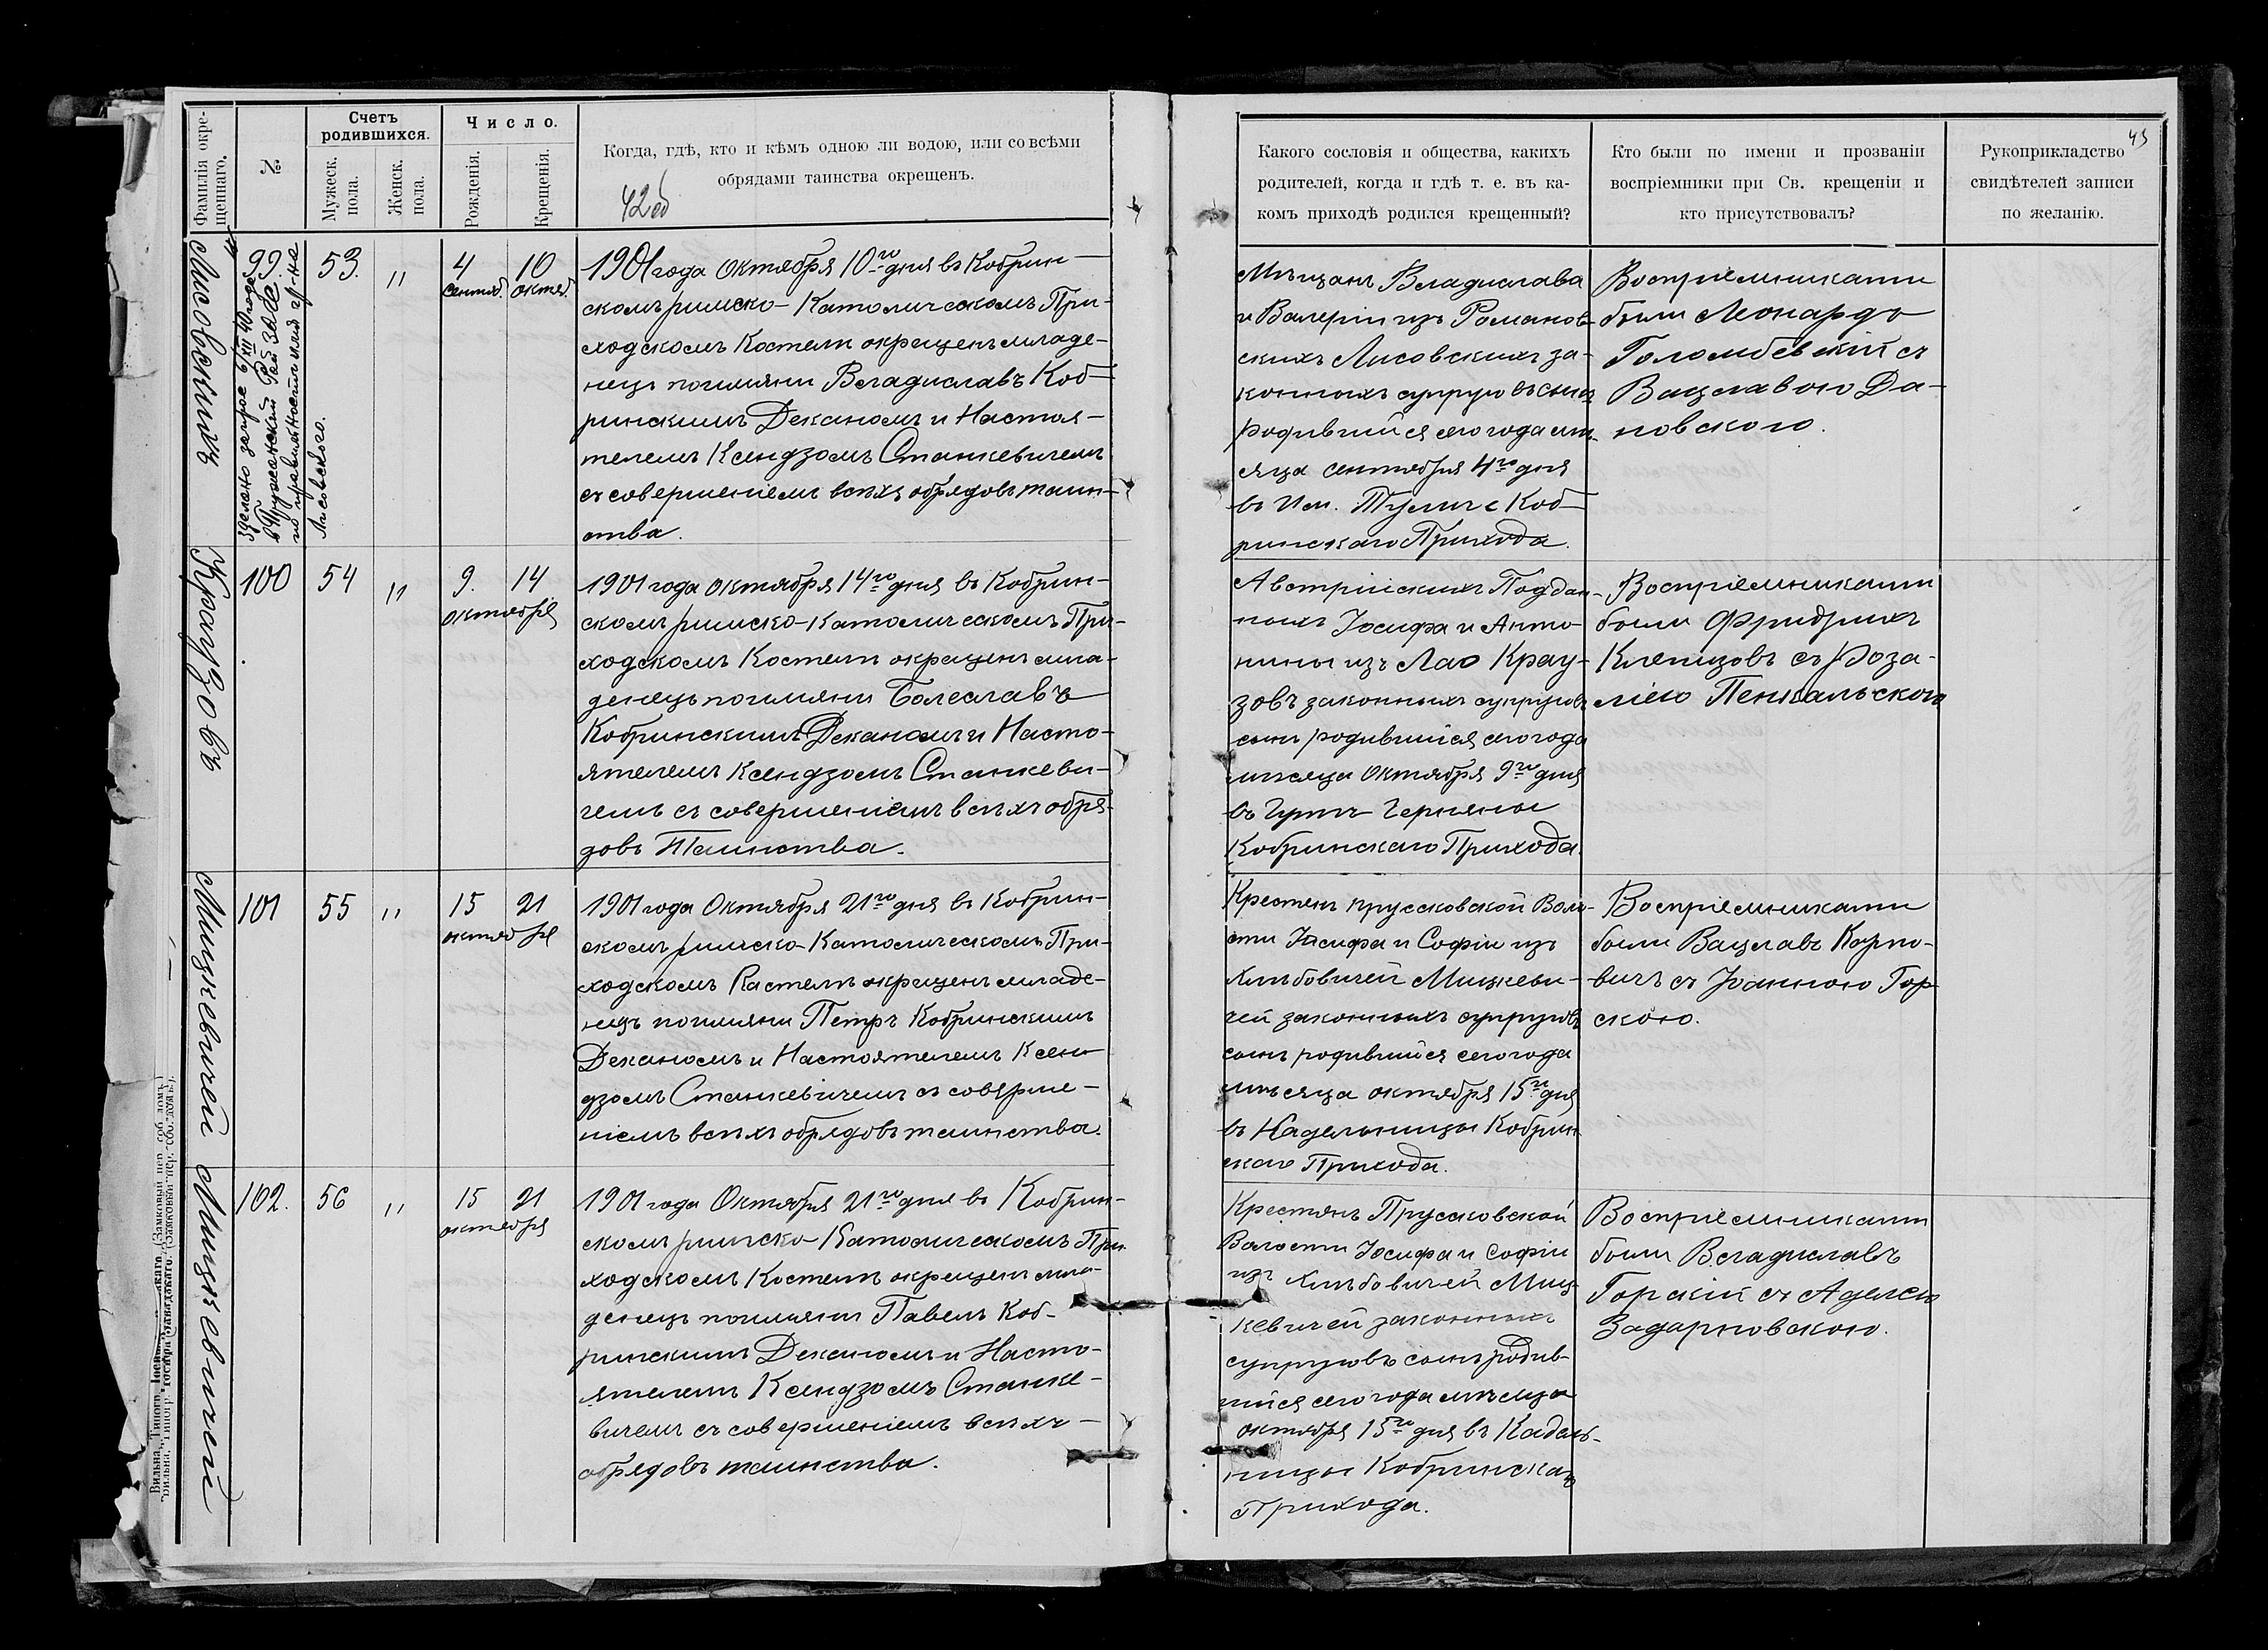 Фамилія окре-
щеннаго.
№
Счетъ
родившихся.
Мужеск.
пола.
Женск.
пола.
Число.
Рожденія.
Крещенія.
Когда, гдѣ, кто и кѣмъ одною ли водою, или со всѣми
обрядами таинства окрещенъ.
42об
Лисовскихъ
99.
53.
"
4
сентяб.
10
октяб.
Сделано запрос 6/XII 40 года
в Пружанский Рай ЗАГС
Лисовского.
1901 года Октября 10го дня въ Кобрин-
скомъ римско-Католическомъ При-
ходскомъ Костелѣ окрещенъ младе-
нецъ по имяни Владиславъ Коб-
ринскимъ Деканомъ и Настоя-
телемъ Ксендзомъ Станкевичемъ
съ совершеніемъ всѣхъ обрядовъ таин-
ства.
Краузовъ
100
54
"
9.
14
октября
1901 года Октября 14го дня въ Кобрин-
скомъ римско-Католическомъ При-
ходскомъ Костелѣ окрещенъ мла-
денецъ по имяни Болеславъ
Кобринскимъ Деканомъ и Насто-
ятелемъ Ксендзомъ Станкеви-
чемъ съ совершеніемъ всѣхъ обря-
довъ Таинства.
Мицкевичей
101
55
"
15
21
октября
1901 года Октября 21го дня въ Кобрин-
скомъ римско-Католическомъ При-
ходскомъ Костелѣ окрещенъ младе-
нецъ по имяни Петръ Кобринскимъ
Деканомъ и Настоятелемъ Ксен-
дзомъ Станкевичемъ съ соверше-
ніемъ всѣхъ обрядовъ таинства.
Мицкевичей
102.
56
"
15
21
октября
1901 года Октября 21го дня въ Кобрин-
скомъ римско-Католическомъ При-
ходскомъ Костелѣ окрещенъ мла-
денецъ по имяни Павелъ Коб-
ринскимъ Деканомъ и Насто-
ятелемъ Ксендзомъ Станке-
вичемъ съ совершеніемъ всѣхъ
обрядовъ таинства.
43
Какого сословія и общества, какихъ
родителей, когда и гдѣ т. е. въ ка-
комъ приходѣ родился крещенный?
Кто были по имени и прозванію
воспріемники при Св. крещеніи и
кто присутствовалъ?
Рукоприкладство
свидѣтелей записи
по желанію.
Мѣщанъ Владислава
и Валеріи изъ Романов-
скихъ Лисовскихъ за-
конныхъ супруговъ сынъ
родившійся сего года мѣ-
сяца Сентября 4го дня
въ Им. Коб-
ринскаго Прихода.
Воспріемниками
были Леонардъ
Голомбевскій съ
Вацлавою Да-
новскою.
Австрійскихъ Поддан-
ныхъ Іосифа и Анто-
нины изъ Лао Крау-
зовъ законныхъ супруговъ
сынъ родившійся сего года
мѣсяца Октября 9го дня
въ Гутѣ Черняны
Кобринскаго Прихода.
Воспріемниками
были Фридрихъ
съ Роза-
ліею Пенкальскою
Крестянъ Прусковской Воло-
сти Іосифа и Софіи изъ
Хлѣбовичей Мицкеви-
чей законныхъ супруговъ
сынъ родившійся сего года
мѣсяца октября 15го дня
въ Кобрин-
скаго Прихода.
Воспріемниками
были Вацлавъ Карпо-
вичъ съ Іоанною Гор-
скою.
Крестянъ Прусковской
Волости Іосифа и Софіи
изъ Хлѣбовичей Миц-
кевичей законныхъ
супруговъ сынъ родив-
шійся сего года мѣсяца
октября 15го дня въ
Кобринскаго
Прихода.
Воспріемниками
были Владиславъ
Горскій съ Аделею
Задарновскою.